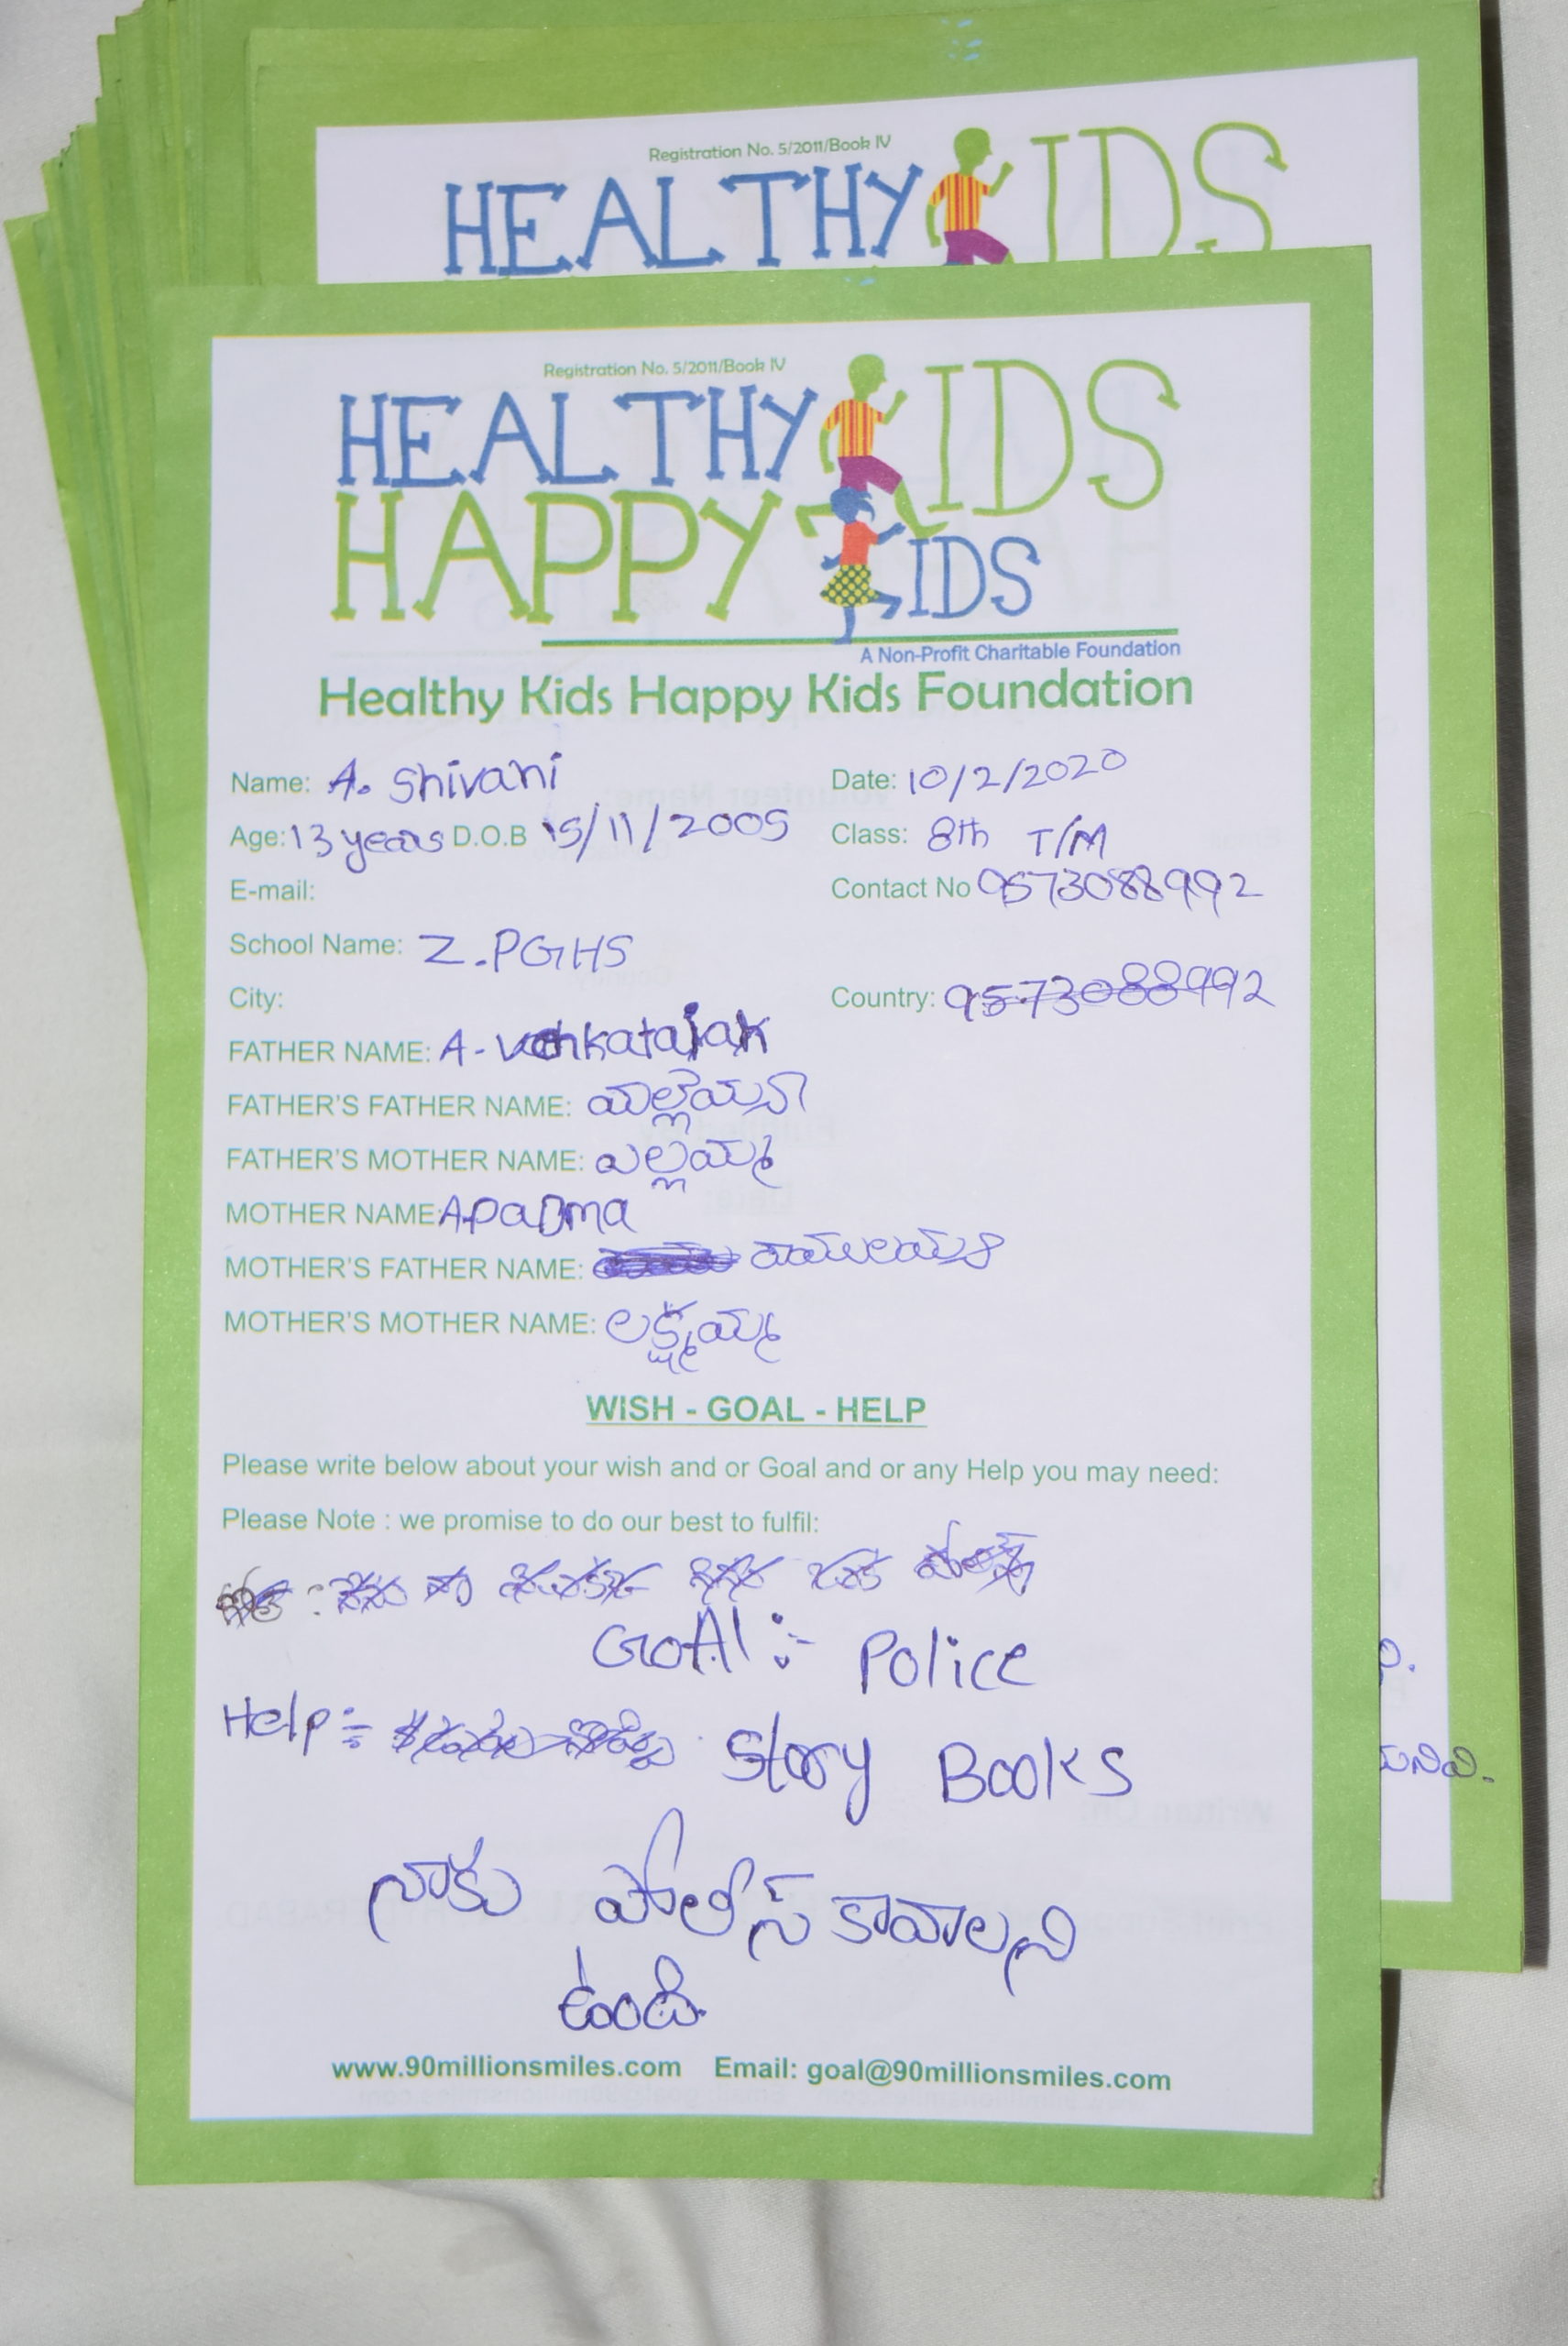 Registration No. 5/2011/Book IV
HEALTHY KIDS
Registration No. 5/2011/Book IV
HEALTHY KIDS
HAPPY KIDS
A Non-Profit Charitable Foundation
Healthy Kids Happy Kids Foundation
Name: A. Shivani Date: 10/2/2020
Age: 13 years D.O.B 15/11/2005 Class: 8th T/M
E-mail: Contact No 9573088992
School Name: Z.PGHS
City: Country: 9573088992
FATHER NAME: A- venkataiah
FATHER'S FATHER NAME:
FATHER'S MOTHER NAME: ఎల్లమ్మ
MOTHER NAME: A padma
MOTHER'S FATHER NAME:
MOTHER'S MOTHER NAME: లక్ష్మమ్మ
WISH - GOAL - HELP
Please write below about your wish and or Goal and or any Help you may need:
Please Note : we promise to do our best to fulfil:
GoAl :- Police
Help :- Story Books
నాకు పోలీస్ కావాలని
ఉంది.
www.90millionsmiles.com Email: goal@90millionsmiles.com